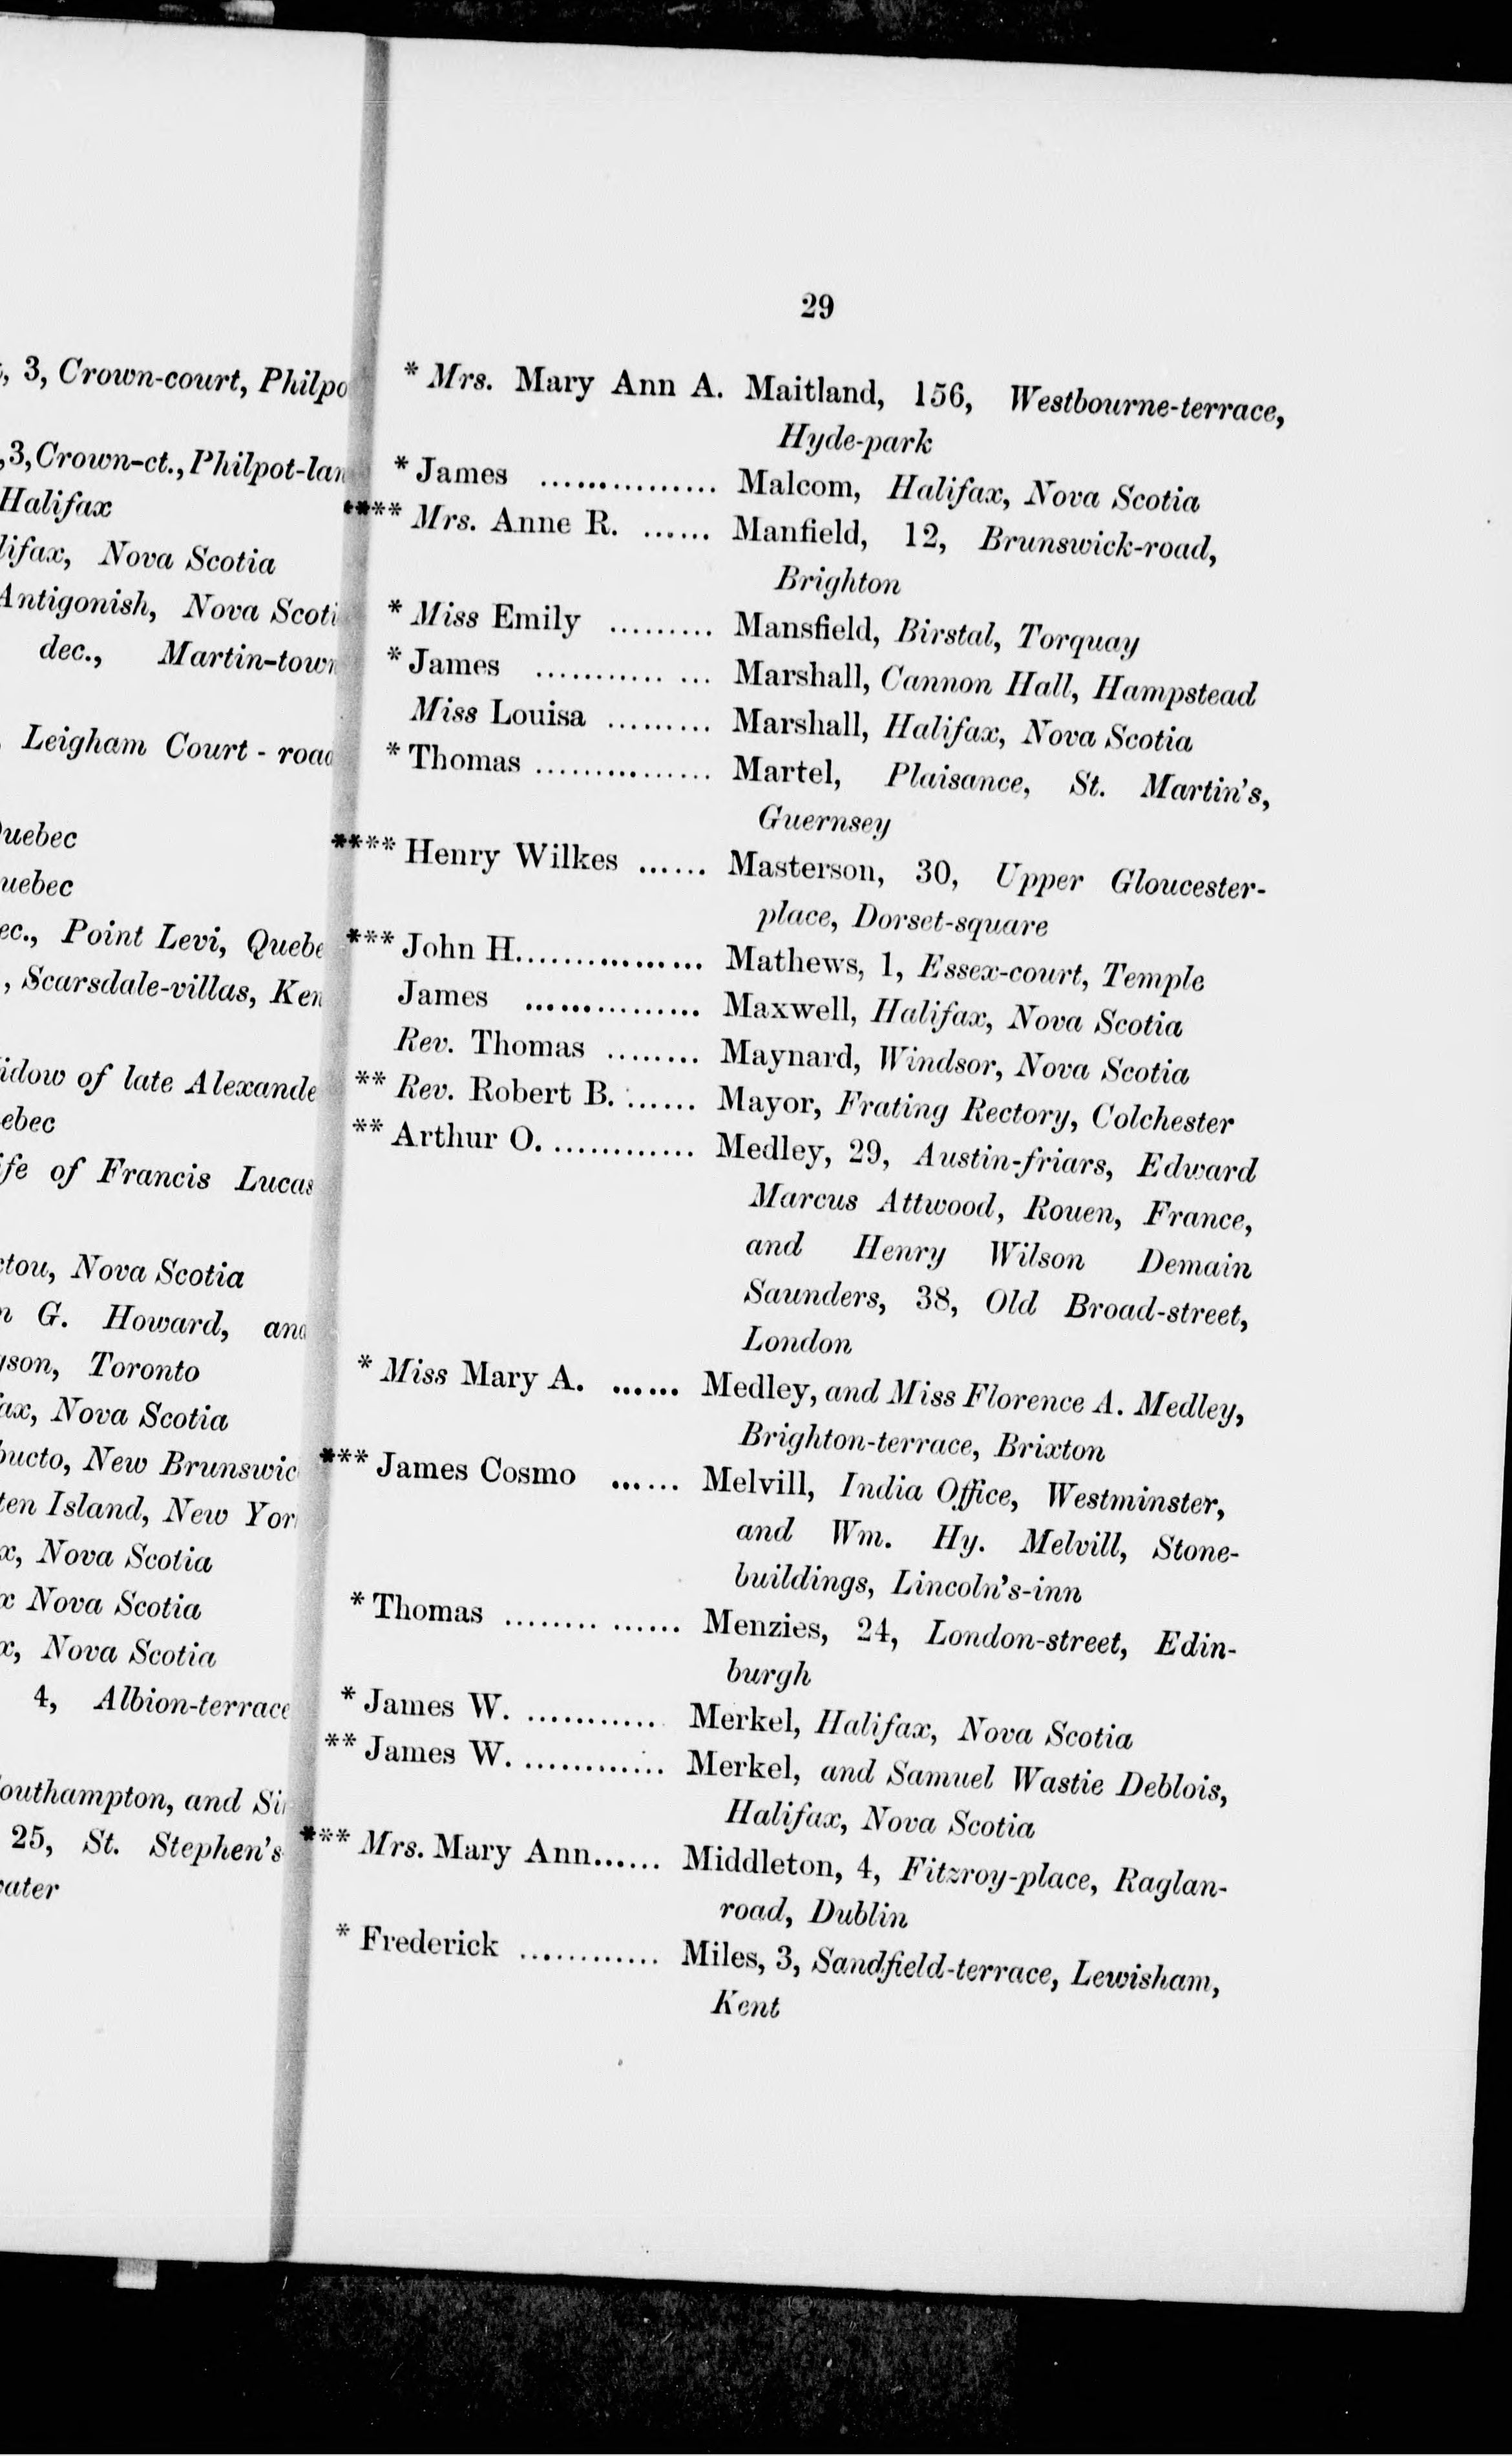 , 3, Crown-court, Philpo
,3, Crown-ct., Philpot-lan
Halifax
lifax, Nova Scotia
Antigonish, Nova Scoti
dec., Martin-town
Leigham Court - road
uebec
uebec
ec., Point Levi, Quebe
, Scarsdale-villas, Ken
idow of late Alexande
ebec
ife of Francis Lucas
ctou, Nova Scotia
n G. Howard, and
gson, Toronto
fax, Nova Scotia
bucto, New Brunswic
ten Island, New Yor
x, Nova Scotia
x Nova Scotia
x, Nova Scotia
4, Albion-terrace
Southampton, and Si
25, St. Stephen's
vater
29
* Mrs. Mary Ann A. Maitland, 156, Westbourne-terrace,
Hyde-park
* James ............... Malcom, Halifax, Nova Scotia
**** Mrs. Anne R. ...... Manfield, 12, Brunswick-road,
Brighton
* Miss Emily ......... Mansfield, Birstal, Torquay
* James ............ ... Marshall, Cannon Hall, Hampstead
Miss Louisa ......... Marshall, Halifax, Nova Scotia
* Thomas ............... Martel, Plaisance, St. Martin's,
Guernsey
**** Henry Wilkes ...... Masterson, 30, Upper Gloucester-
place, Dorset-square
*** John H................. Mathews, 1, Essex-court, Temple
James ............... Maxwell, Halifax, Nova Scotia
Rev. Thomas ........ Maynard, Windsor, Nova Scotia
** Rev. Robert B. ...... Mayor, Frating Rectory, Colchester
** Arthur O. ............ Medley, 29, Austin-friars, Edward
Marcus Attwood, Rouen, France,
and Henry Wilson Demain
Saunders, 38, Old Broad-street,
London
* Miss Mary A. ...... Medley, and Miss Florence A. Medley,
Brighton-terrace, Brixton
*** James Cosmo ...... Melvill, India Office, Westminster,
and Wm. Hy. Melvill, Stone-
buildings, Lincoln's-inn
* Thomas ........ ...... Menzies, 24, London-street, Edin-
burgh
* James W. ............ Merkel, Halifax, Nova Scotia
** James W. ............ Merkel, and Samuel Wastie Deblois,
Halifax, Nova Scotia
*** Mrs. Mary Ann...... Middleton, 4, Fitzroy-place, Raglan-
road, Dublin
* Frederick ............ Miles, 3, Sandfield-terrace, Lewisham,
Kent